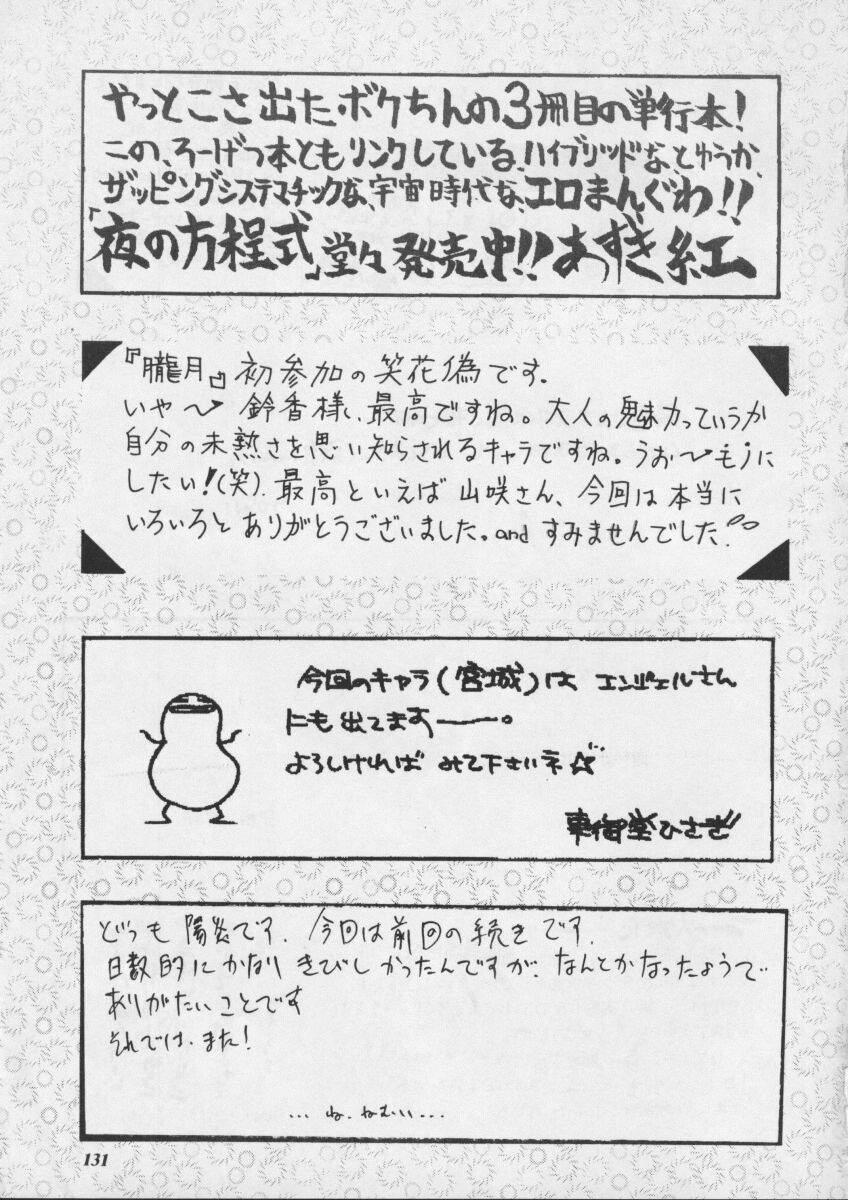 やっとこさ出たボクちんの3冊目の単行本!
この、ろーげつ本ともリンクしている、ハイブリッドな、とゆうか、
ザッピングシステマチックな、宇宙時代な、エロまんぐわ!!
「夜の方程式」堂々発売中!!あずき紅
『朧月』初参加の笑花偽です.
いや〜 鈴香様、最高ですね。大人の魅力っていうか
自分の未熟さを思い知らされるキャラですね。うお〜モノに
したい!(笑). 最高といえば山咲さん、今回は本当に
いろいろとありがとうございました。and すみませんでした.
今回のキャラ(宮城)は エンジェルさん
にも出てますーー。
よろしければ みて下さいネ☆
東御堂ひさぎ
どっも 陽炎です. 今回は前回の続きです.
日数的にかなり きびしかったんですが、なんとかなったようで
ありがたいことです
それでは、また!
... ね、ねむい...
131